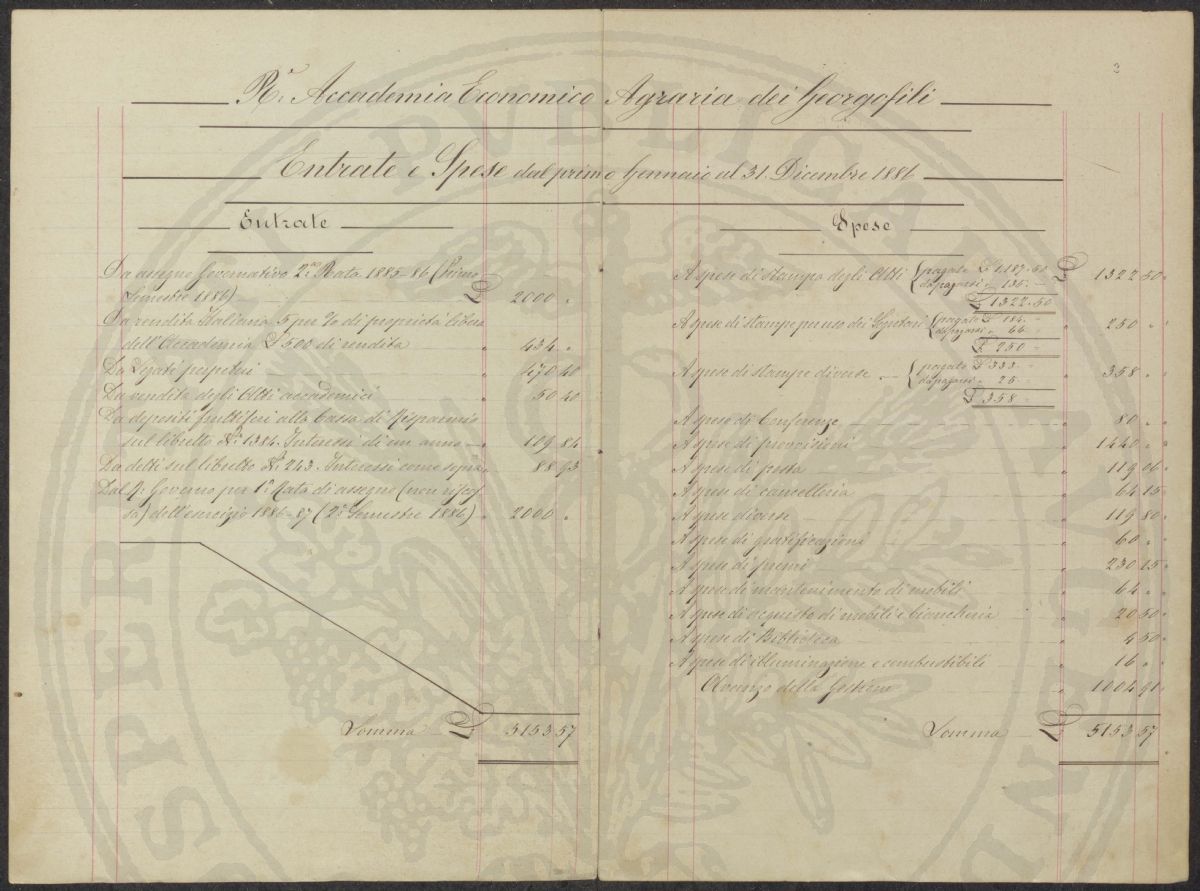 2
R.ᵉ Accademia Economico Agraria dei Georgofili
Entrate e Spese dal primo Gennaio al 31 Dicembre 1886
Entrate
Da assegno Governativo 2.ᵃ Rata 1885-86 (Primo
Semestre 1886) £ 2000 „
Da rendita Italiana 5 per % di proprietà libera
dell'Accademia £ 500 di rendita „ 434 „
Da Legati perpetui „ 470 40
Da vendita degli Atti accademici „ 50 40
Da depositi fruttiferi alla Cassa di Risparmio
sul libretto N.º 1384. Interessi di un anno „ 109 84
Da detti sul libretto N.º 243. Interessi come sopra „ 88 93
Dal R.º Governo per 1.ª Rata di assegno (non riscos
sa) dell'esercizio 1886-87 (2.º Semestre 1886) „ 2000 „
Somma £ 5153 57
Spese
A spese di stampa degli Atti { pagate £ 1187.50 £ 1322 50
da pagarsi „ 135. –
£ 1322.50
A spese di stampe per uso dei { pagate £ 184. – „ 250 „
da pagarsi „ 66 –
£ 250 –
A spese di stampe diverse { pagate £ 333 – „ 358 „
da pagarsi „ 25 –
£ 358 –
A spese di Conferenze „ 80 „
A spese di provvisioni „ 1440 „
A spese di posta „ 119 06
A spese di cancelleria „ 64 15
A spese diverse „ 119 80
A spese di gratificazioni „ 60 „
A spese di premi „ 230 15
A spese di mantenimento di mobili „ 64 „
A spese di acquisto di mobili e biancheria „ 20 50
A spese di Biblioteca „ 4 50
A spese di illuminazione e combustibili „ 16 „
Avanzo della Gestione „ 1004 91
Somma £ 5153 57